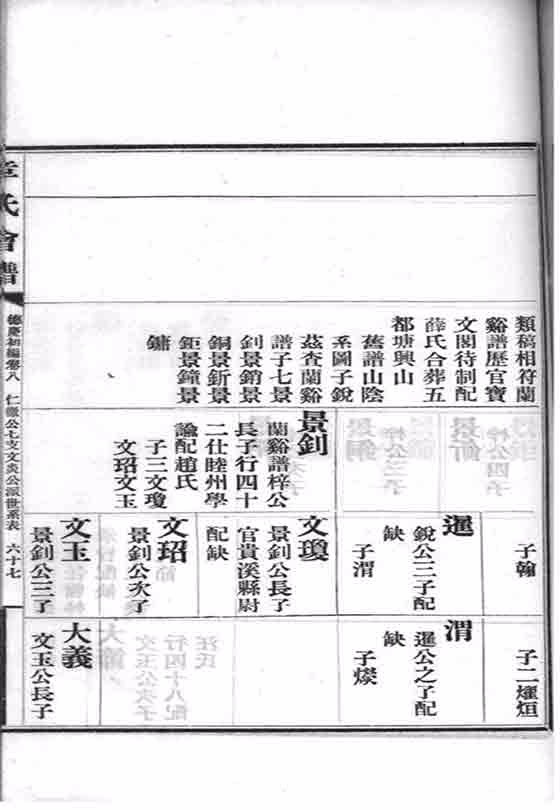 類稿相符蘭
谿譜歷官寶
文閣待制配
薛氏合葬五
都塘興山
舊譜山陰
系圖子銳
茲查蘭谿
譜子七景
釗景銷景
銅景釿景
鉅景鐘景
鏞
景釗
蘭谿譜梓公
長子行四十
二仕睦州學
諭配趙氏
子三文瓊
文玿文玉
子翰
暹
銳公三子配
缺
子渭
文瓊
景釗公長子
官貴溪縣尉
配缺
文玿
景釗公次子
文玉
景釗公三子
子二燿烜
渭
暹公之子配
缺
子
大義
文玉公長子
章氏會譜
德慶初編卷八
仁徽公七支文炎公派世系表
六十七